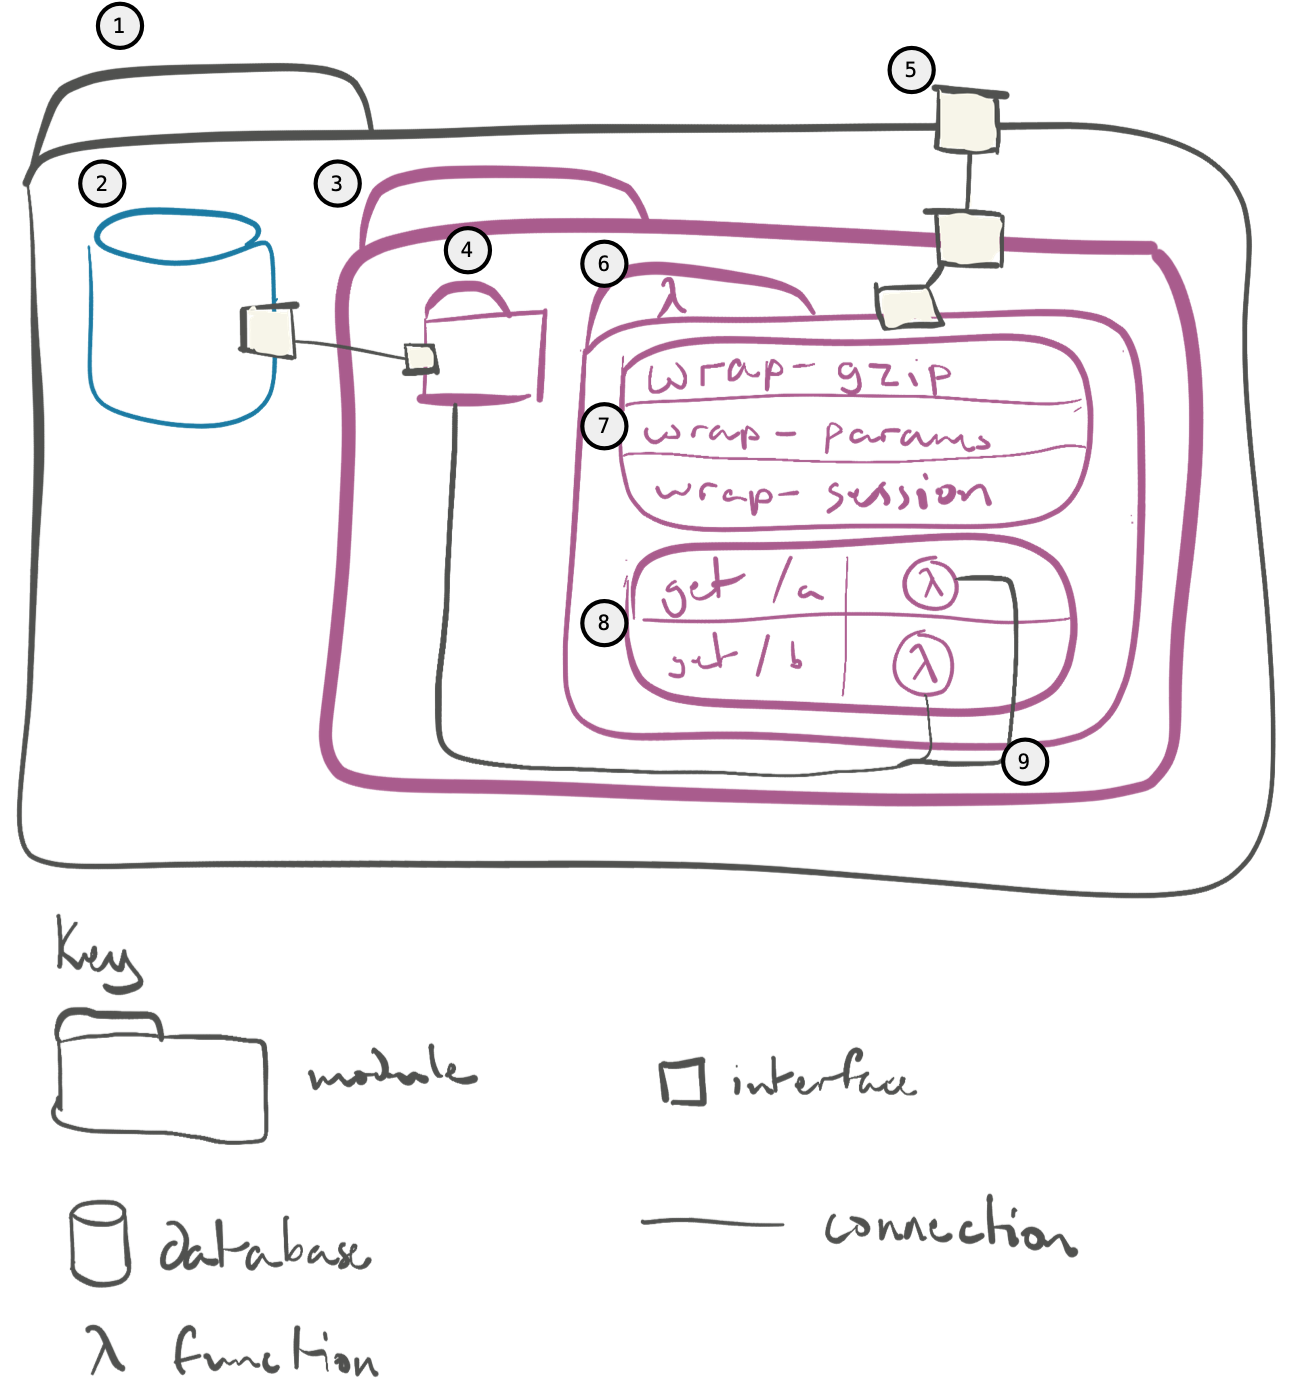 1
5
2
3
4
6
λ
wrap-gzip
7
wrap-params
wrap-session
get /a λ
8
get /b λ
9
Key
module
interface
database
connection
λ function